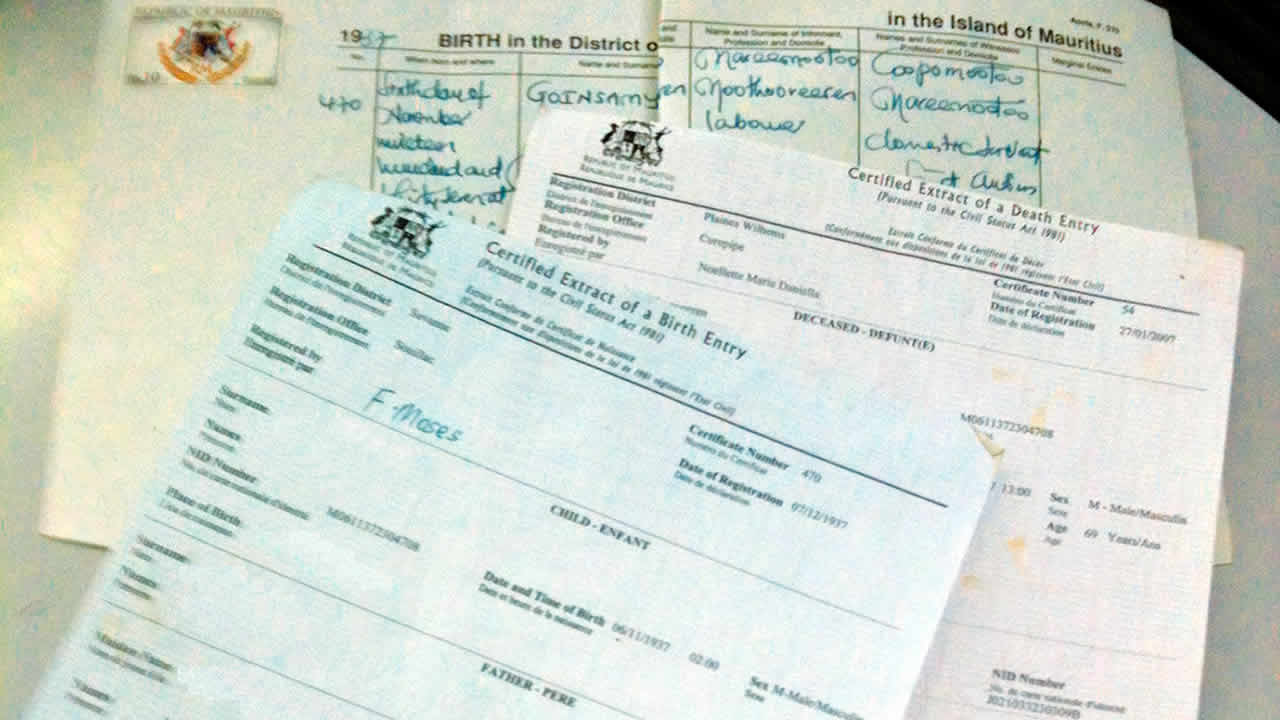 REPUBLIC OF MAURITIUS
Rs 10
1937
BIRTH in the District o
in the Island of Mauritius
No.
When born and where
Name and Surname
Name and Surname of Informant,
Profession and Domicile
Names and Surnames of Witnesses
Profession and Domicile
Margine Entries
470
Sixth day of
November
nineteen
hundred and
thirty seven at
GOINSAMY
Nareenootoo
Moothooveeren
labourer
Coopomootoo
Nareenootoo
domestic servant
REPUBLIC OF MAURITIUS
Certified Extract of a Death Entry
(Pursuant to the Civil Status Act 1981)
Extrait Conforme du Certificat de Décès
(Conformément aux dispositions de la loi de 1981 régissant l'Etat Civil)
Registration District
District de l'enregistrement
Plaines Wilhems
Registration Office
Bureau de l'enregistrement
Curepipe
Registered by
Enregistré par
Noellette Marie Daniella
Certificate Number 54
Numéro du Certificat
Date of Registration 27/01/2007
Date de déclaration
DECEASED - DEFUNT(E)
M0611372304708
13:00
Sex M - Male/Masculin
Sexe
Age 69 Years/Ans
Age
NID Number
No. de carte nationale d'identité
Certified Extract of a Birth Entry
(Pursuant to the Civil Status Act 1981)
Extrait Conforme du Certificat de Naissance
(Conformément aux dispositions de la loi de 1981 régissant l'Etat Civil)
Registration District
District de l'enregistrement
Savanne
Registration Office
Bureau de l'enregistrement
Souillac
Registered by
Enregistré par
F. Moses
Certificate Number 470
Numéro du Certificat
Date of Registration 07/12/1937
Date de déclaration
CHILD - ENFANT
Surname
Names
NID Number
No. de carte nationale d'identité
M0611372304708
Place of Birth
Lieu de naissance
Date and Time of Birth 06/11/1937 02:00
Date et heure de la naissance
Sex M-Male/Masculin
Sexe
FATHER - PERE
Surname
Names
Maiden Name
Names